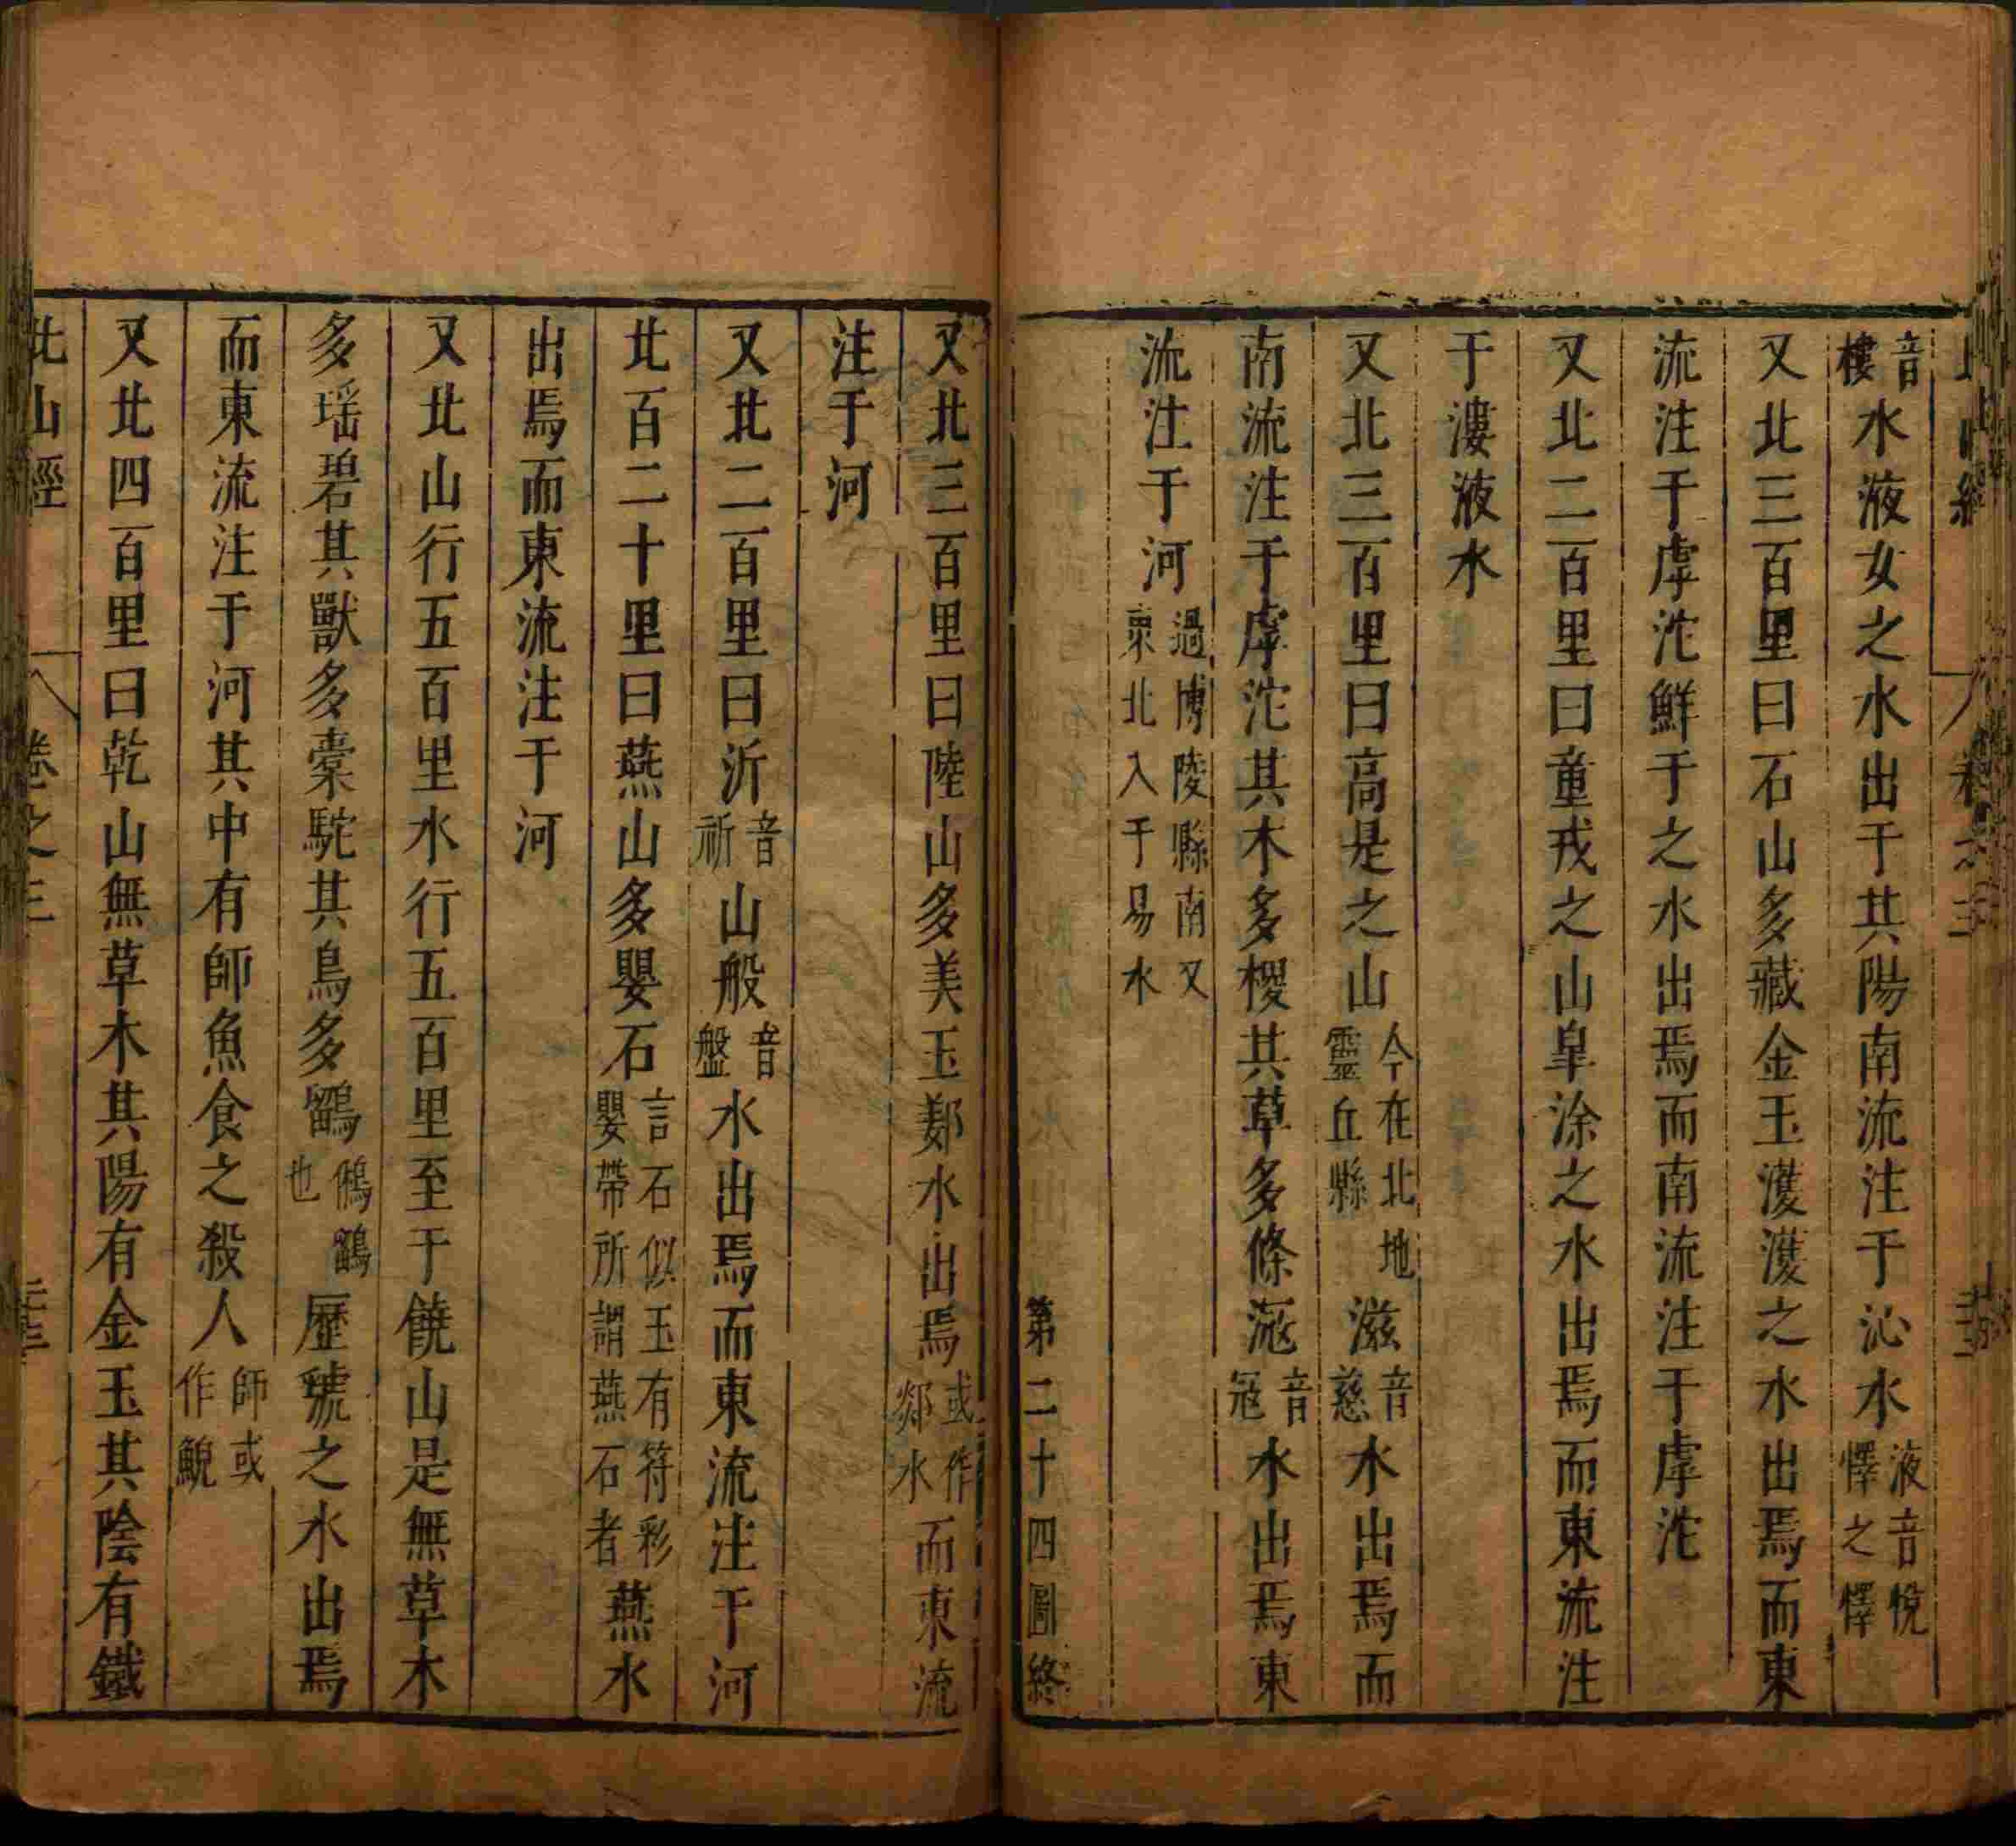 音樓水液女之水出于其陽南流注于沁水液音悅懌之懌
又北三百里曰石山多藏金玉濩濩之水出焉而東
流注于虖沱鮮于之水出焉而南流注于虖沱
又北二百里曰童戎之山皐涂之水出焉而東流注
于漊液水
又北三百里曰高是之山今在北地靈丘縣滋音慈水出焉而
南流注于虖沱其木多椶其草多條滱音寇水出焉東
流注于河過博陵縣南又東北入于易水
第二十四圖終
又北三百里曰陸山多美玉䣌水出焉或作郯水而東流
注于河
又北二百里曰沂音祈山般音盤水出焉而東流注于河
北百二十里曰燕山多嬰石言石似玉有符彩嬰帶所謂燕石者燕水
出焉而東流注于河
又北山行五百里水行五百里至于饒山是無草木
多瑤碧其獸多橐駝其鳥多鶹鵂鶹也歷虢之水出焉
而東流注于河其中有師魚食之殺人師或作鯢
又北四百里曰乾山無草木其陽有金玉其陰有鐵
北山經 卷之三